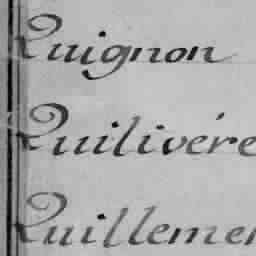 Quignon
Quilivére
Quillemen